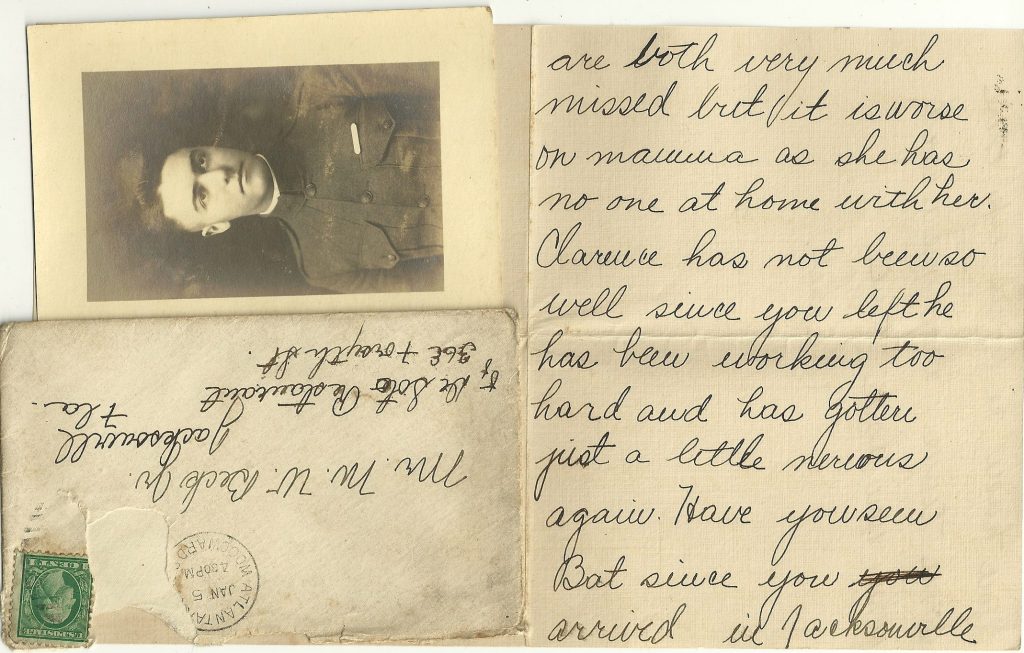 are both very much
missed but it is worse
on mamma as she has
no one at home with her.
Clarence has not been so
well since you left he
has been working too
hard and has gotten
just a little nervous
again. Have you seen
Bat since you you
arrived in Jacksonville
ATLANTA
WOODWARD
JAN 5
430PM
Mr. M. W. Beck Jr.
Jacksonvill
Fla.
De Soto Restaurant
Forsyth St.